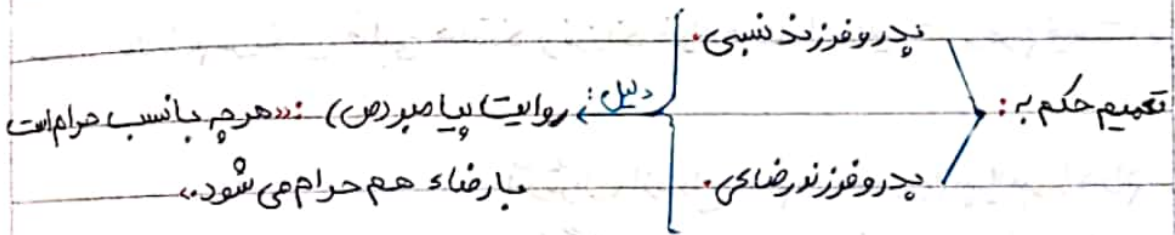 تعمیم حکم به:
پدر و فرزند نسبی.
پدر و فرزند رضاعی.
دلیل:
روایت پیامبر (ص): «هرچه با نسب حرام است
با رضاء هم حرام می شود.»